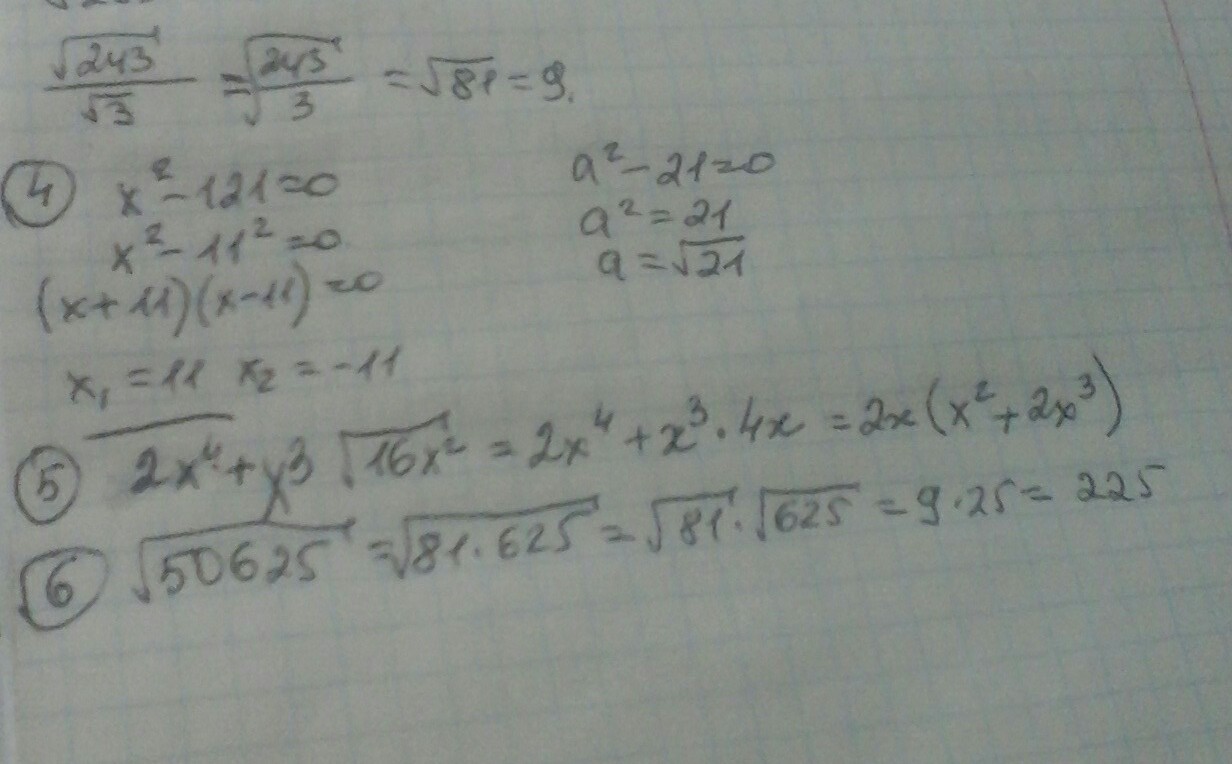 √243/√3 = √243/3 = √81 = 9.
④ x² - 121 = 0
x² - 11² = 0
(x + 11)(x - 11) = 0
x₁ = 11 x₂ = -11
a² - 21 = 0
a² = 21
a = √21
⑤ 2x⁴ + x³ √16x² = 2x⁴ + x³ · 4x = 2x(x² + 2x³)
⑥ √50625 = √81 · 625 = √81 · √625 = 9 · 25 = 225